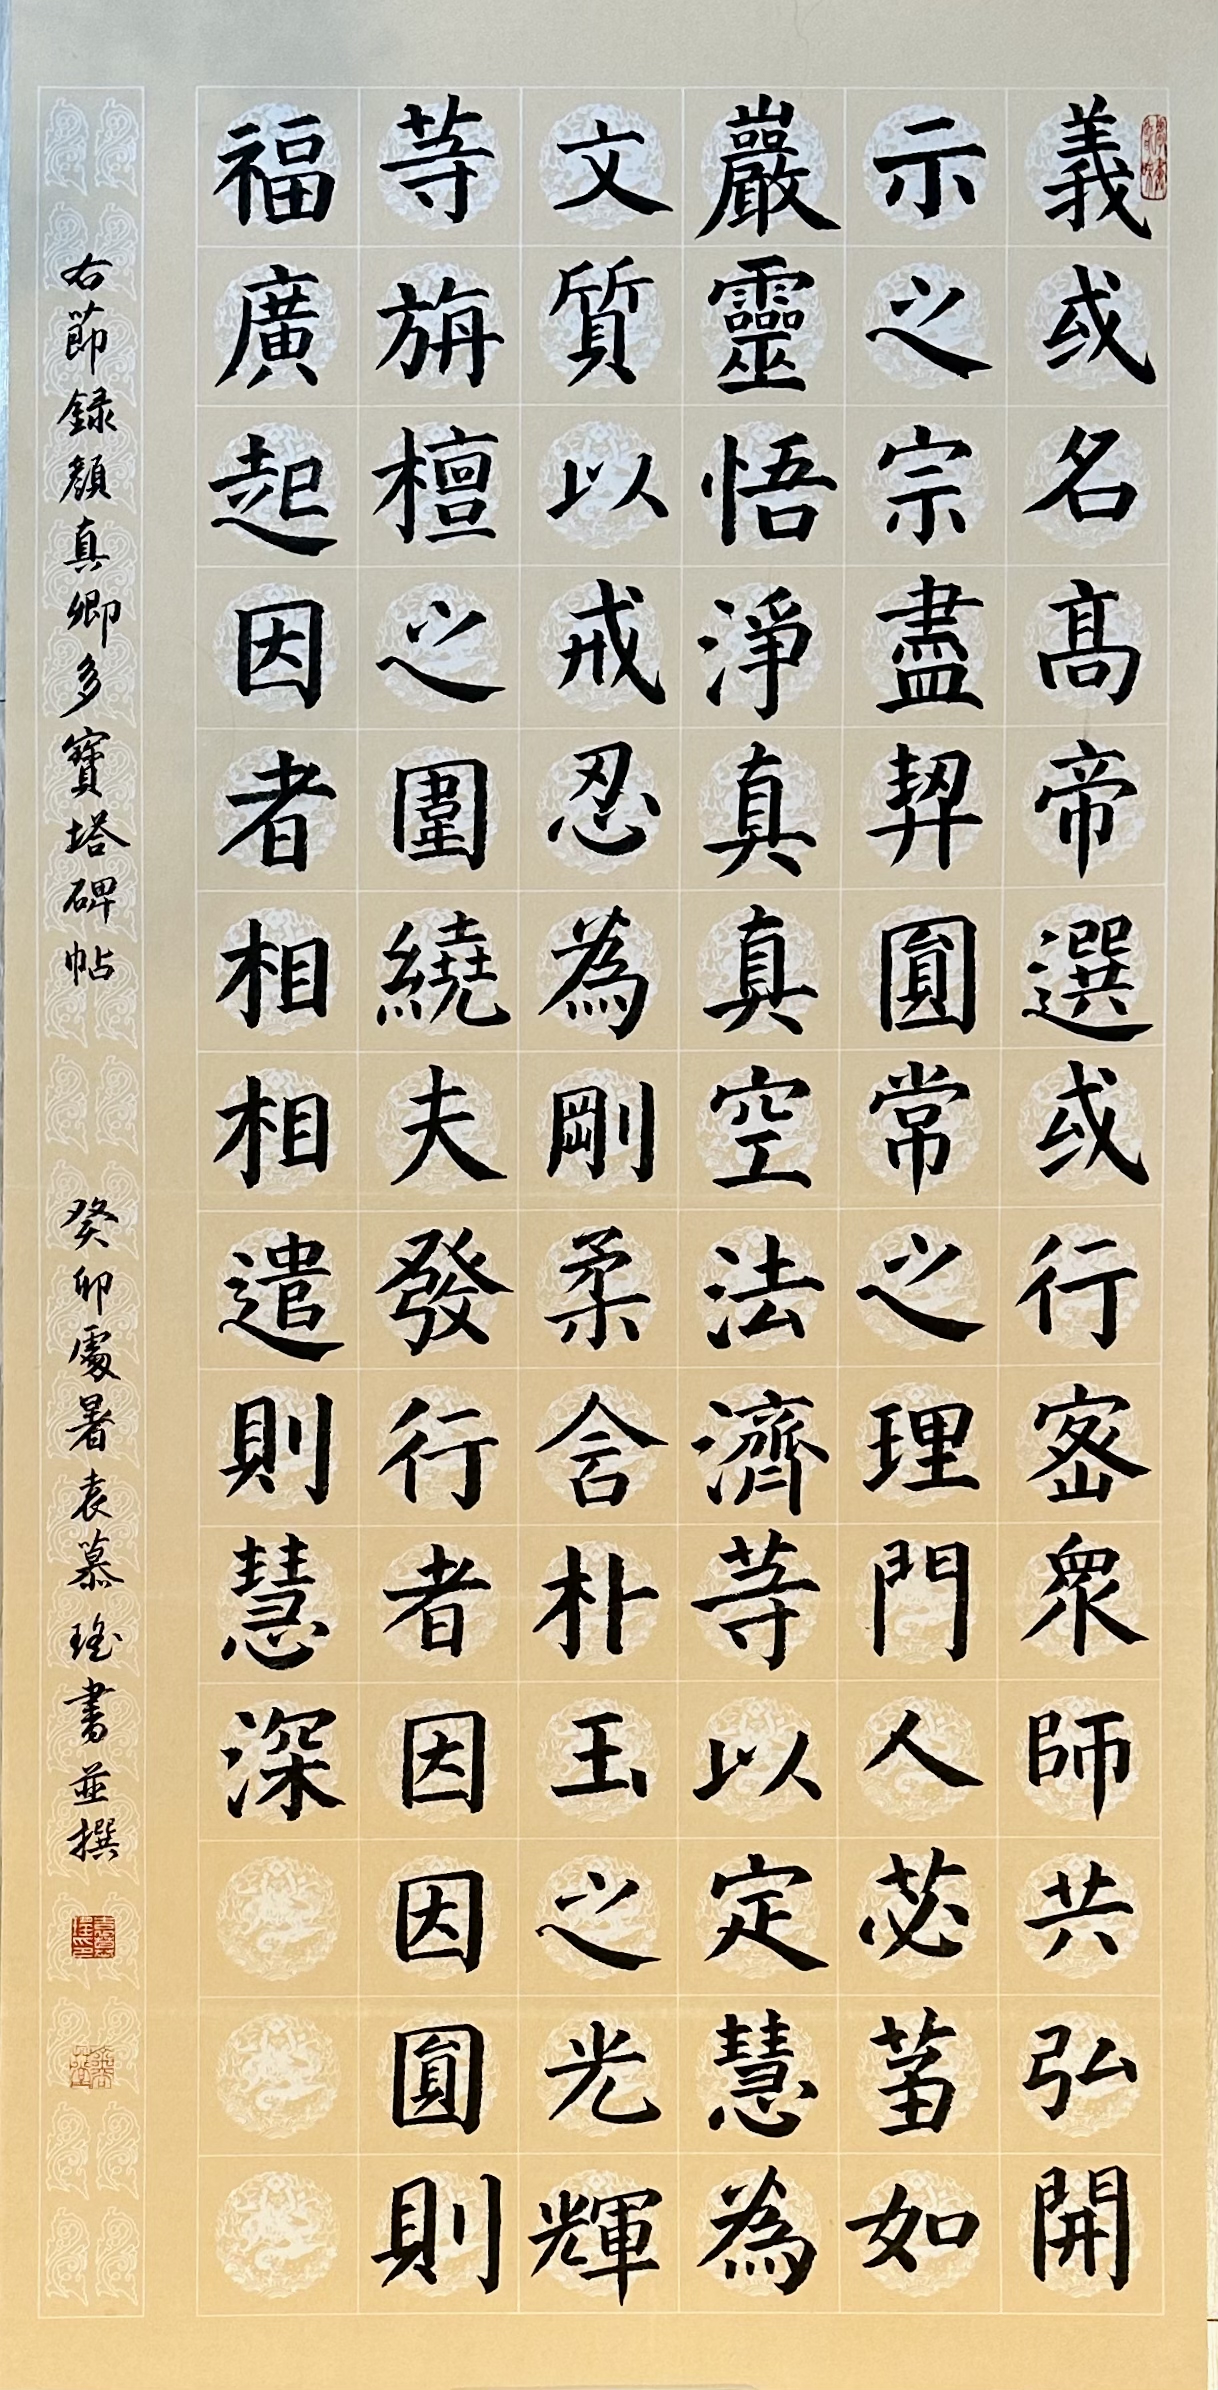 義或名高帝選或行密眾師共弘開
示之宗盡契圓常之理門人苾蒭如
巖靈悟淨真真空法濟等以定慧為
文質以戒忍為剛柔含朴玉之光輝
等旃檀之圍繞夫發行者因因圓則
福廣起因者相相遣則慧深
右節録顏真卿多寶塔碑帖 癸卯處暑袁慕瑤書並撰